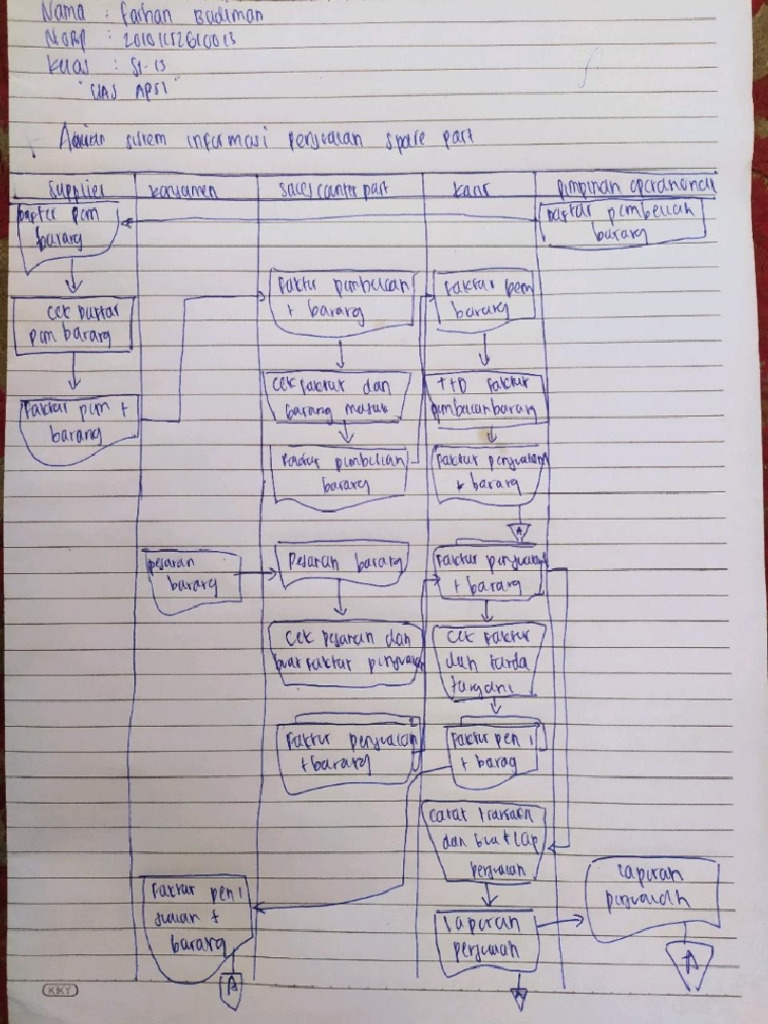 Nama : Farhan Budiman
Kelas : SI-13
"UAS APSI"
sistem informasi penjualan spare part
Supplier
Konsumen
Sales canter part
Kasir
pimpinan operasional
Daftar pem
barang
Daftar pembelian
barang
Faktur pembelian
+ barang
Faktur pem
barang
Cek Daftar
pem barang
Cek faktur dan
barang masuk
TTD faktur
pembelian barang
Faktur pem +
barang
Faktur pembelian
barang
Faktur penjualan
+ barang
A
pesanan
barang
Pesanan barang
Faktur penjualan
+ barang
Cek pesanan dan
buat faktur penjualan
Cek faktur
dan tanda
tangani
2
Faktur penjualan
+ barang
Faktur pen 1
+ barag
Catat transaksi
dan buat lap
penjualan
Faktur pen 1
jualan +
barang
Laporan
penjualan
Laporan
A
A
A
KKY